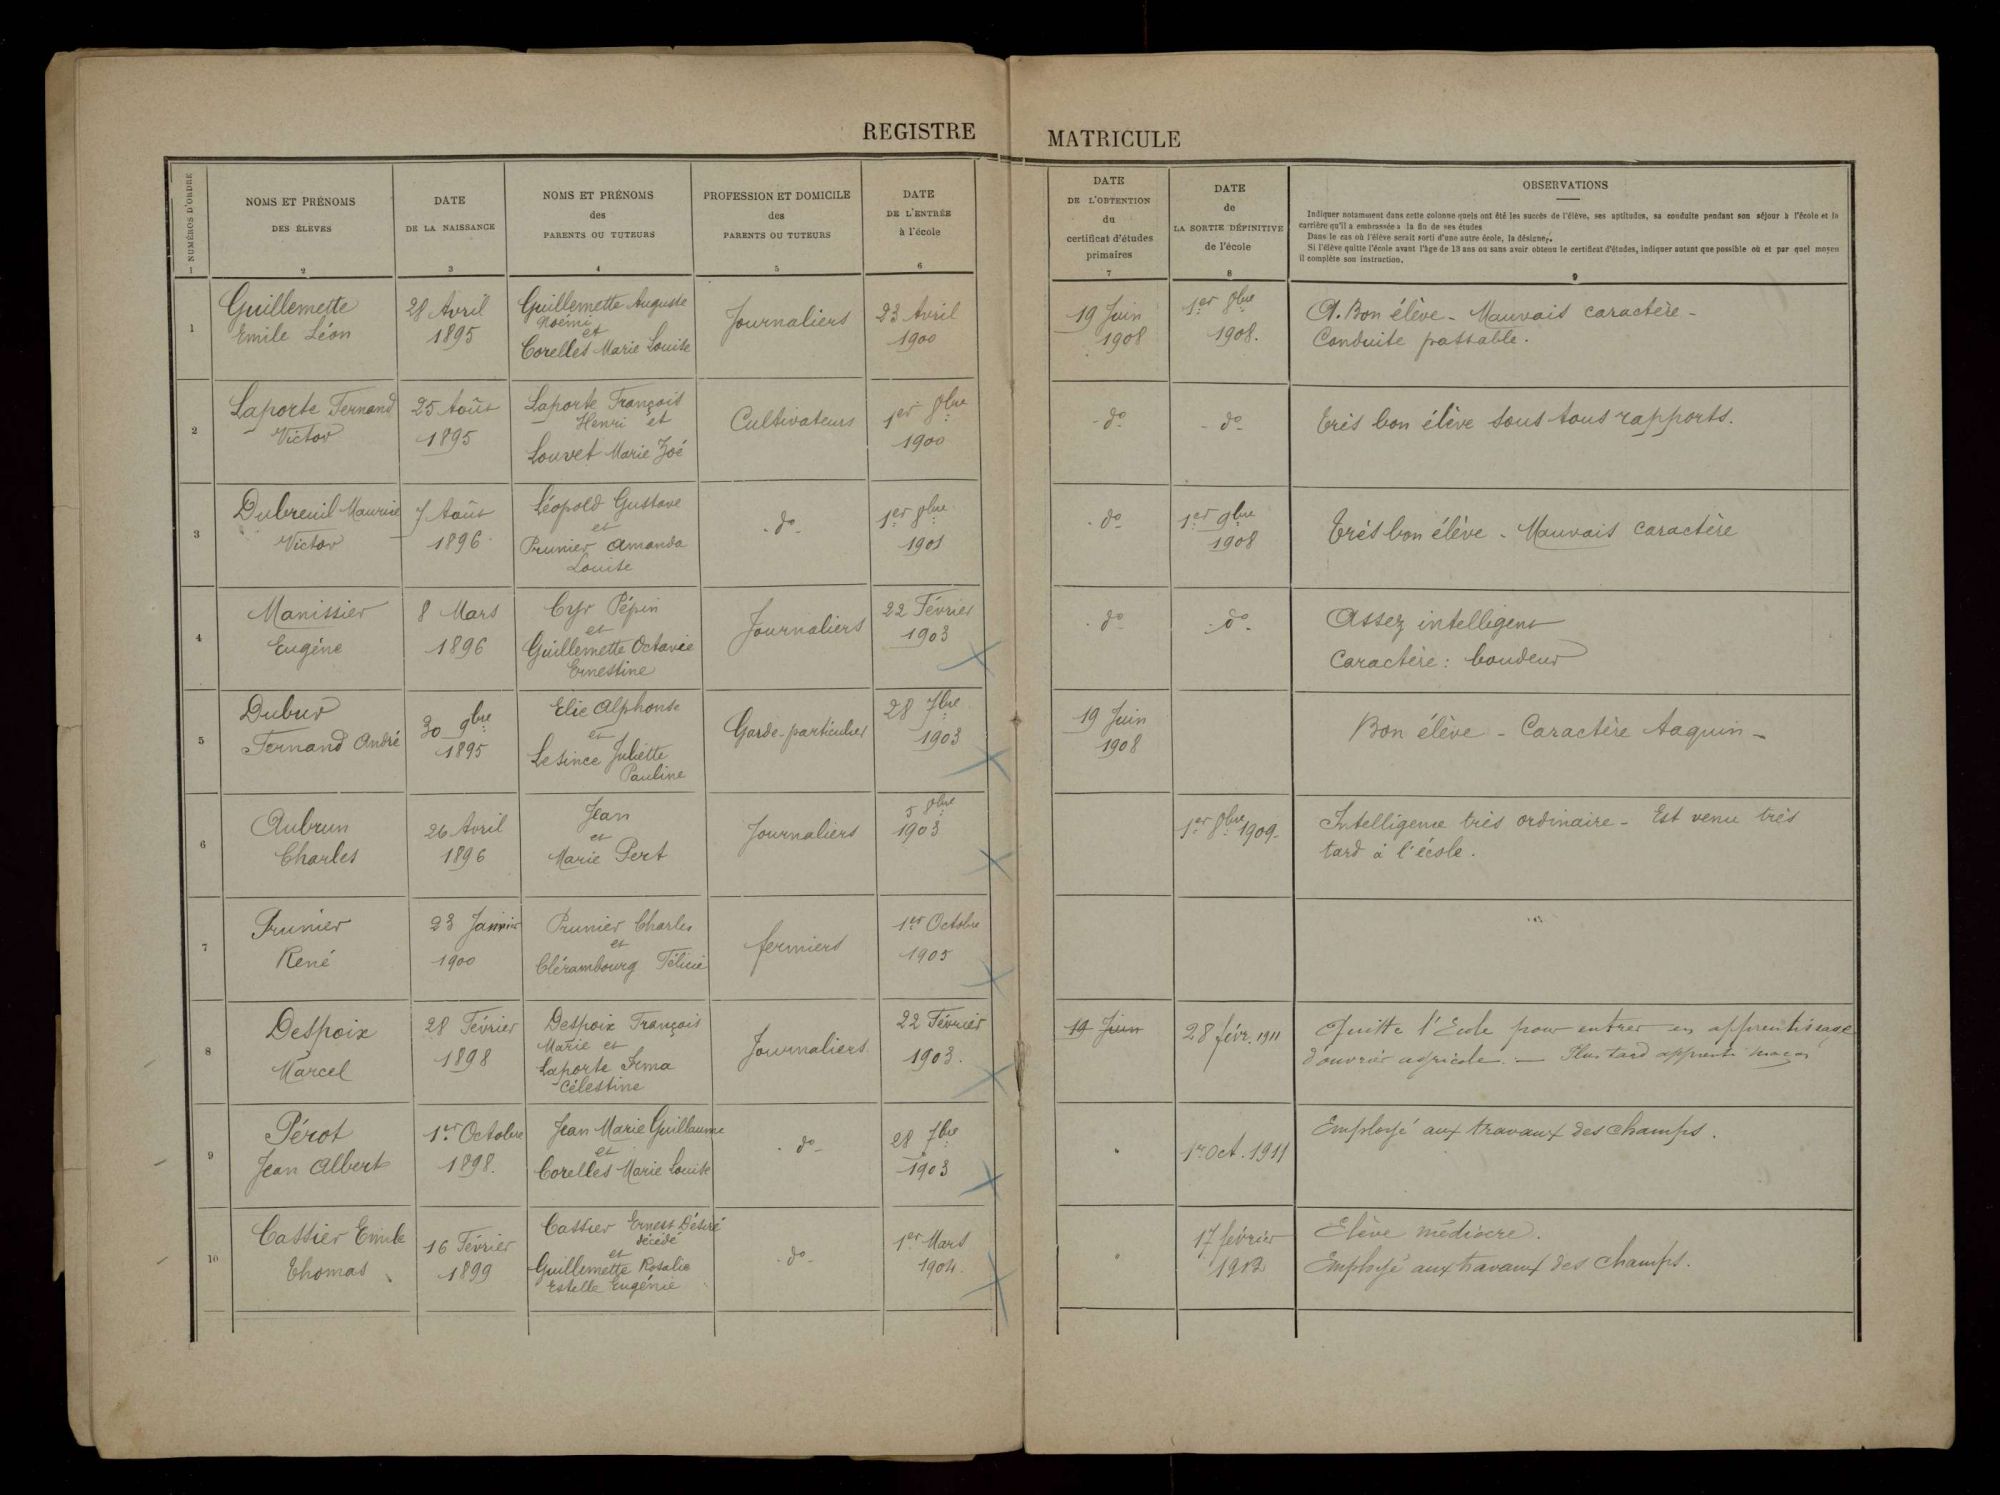 REGISTRE MATRICULE
NUMÉROS D'ORDRE
1
NOMS ET PRÉNOMS
DES ÉLÈVES
2
DATE
DE LA NAISSANCE
3
NOMS ET PRÉNOMS
des
PARENTS OU TUTEURS
4
PROFESSION ET DOMICILE
des
PARENTS OU TUTEURS
5
DATE
DE L'ENTRÉE
à l'école
6
DATE
DE L'OBTENTION
du
certificat d'études
primaires
7
DATE
de
LA SORTIE DÉFINITIVE
de l'école
8
OBSERVATIONS
Indiquer notamment dans cette colonne quels ont été les succès de l'élève, ses aptitudes, sa conduite pendant son séjour à l'école et la
carrière qu'il a embrassée à la fin de ses études
Dans le cas où l'élève serait sorti d'une autre école, la désigner.
Si l'élève quitte l'école avant l'âge de 13 ans ou sans avoir obtenu le certificat d'études, indiquer autant que possible où et par quel moyen
il complète son instruction.
9
1
Guillemette
Emile Léon
28 Avril
1895
Guillemette Auguste
Noémi
et
Corelles Marie Louise
Journaliers
23 Avril
1900
19 Juin
1908
1er 8bre
1908.
A. Bon élève - Mauvais caractère -
Conduite passable.
2
Laporte Fernand
Victor
25 Août
1895
Laporte François
Henri et
Louvet Marie Zoé
Cultivateurs
1er 8bre
1900
- do -
- do -
Très bon élève sous tous rapports.
3
Dubreuil Maurice
Victor
7 Août
1896
Léopold Gustave
et
Prunier Amanda
Louise
- do -
1er 8bre
1901
- do -
1er 9bre
1908
Très bon élève - Mauvais caractère
4
Manissier
Eugène
8 Mars
1896
Cyr Pépin
et
Guillemette Octavie
Ernestine
Journaliers
22 Février
1903
- do -
- do -
Assez intelligent
Caractère : boudeur
5
Dubur
Fernand André
30 9bre
1895
Elie Alphonse
et
Lesince Juliette
Pauline
Garde-particulier
28 7bre
1903
19 Juin
1908
Bon élève - Caractère taquin -
6
Aubrun
Charles
26 Avril
1896
Jean
et
Marie Pert
Journaliers
5 8bre
1903
1er 8bre 1909-
Intelligence très ordinaire - Est venu très
tard à l'école.
7
Prunier
René
23 Janvier
1900
Prunier Charles
et
Clérambourg Félicie
fermiers
1er Octobre
1905
8
Despoix
Marcel
28 Février
1898
Despoix François
Marie et
Laporte Irma
Célestine
Journaliers
22 Février
1903.
19 Juin
28 févr. 1911
Quitte l'Ecole pour entrer en apprentissage
d'ouvrier agricole. — Plus tard apprenti maçon
9
Pérot
Jean Albert
1er Octobre
1898.
Jean Marie Guillaume
et
Corelles Marie Louise
- do -
28 7bre
1903
"
1er Oct. 1911
Employé aux travaux des champs.
10
Cassier Emile
Thomas
16 Février
1899
Cassier Ernest Désiré
décédé
et
Guillemette Rosalie
Estelle Eugénie
- do -
1er Mars
1904.
"
17 février
1912
Elève médiocre.
Employé aux travaux des champs.